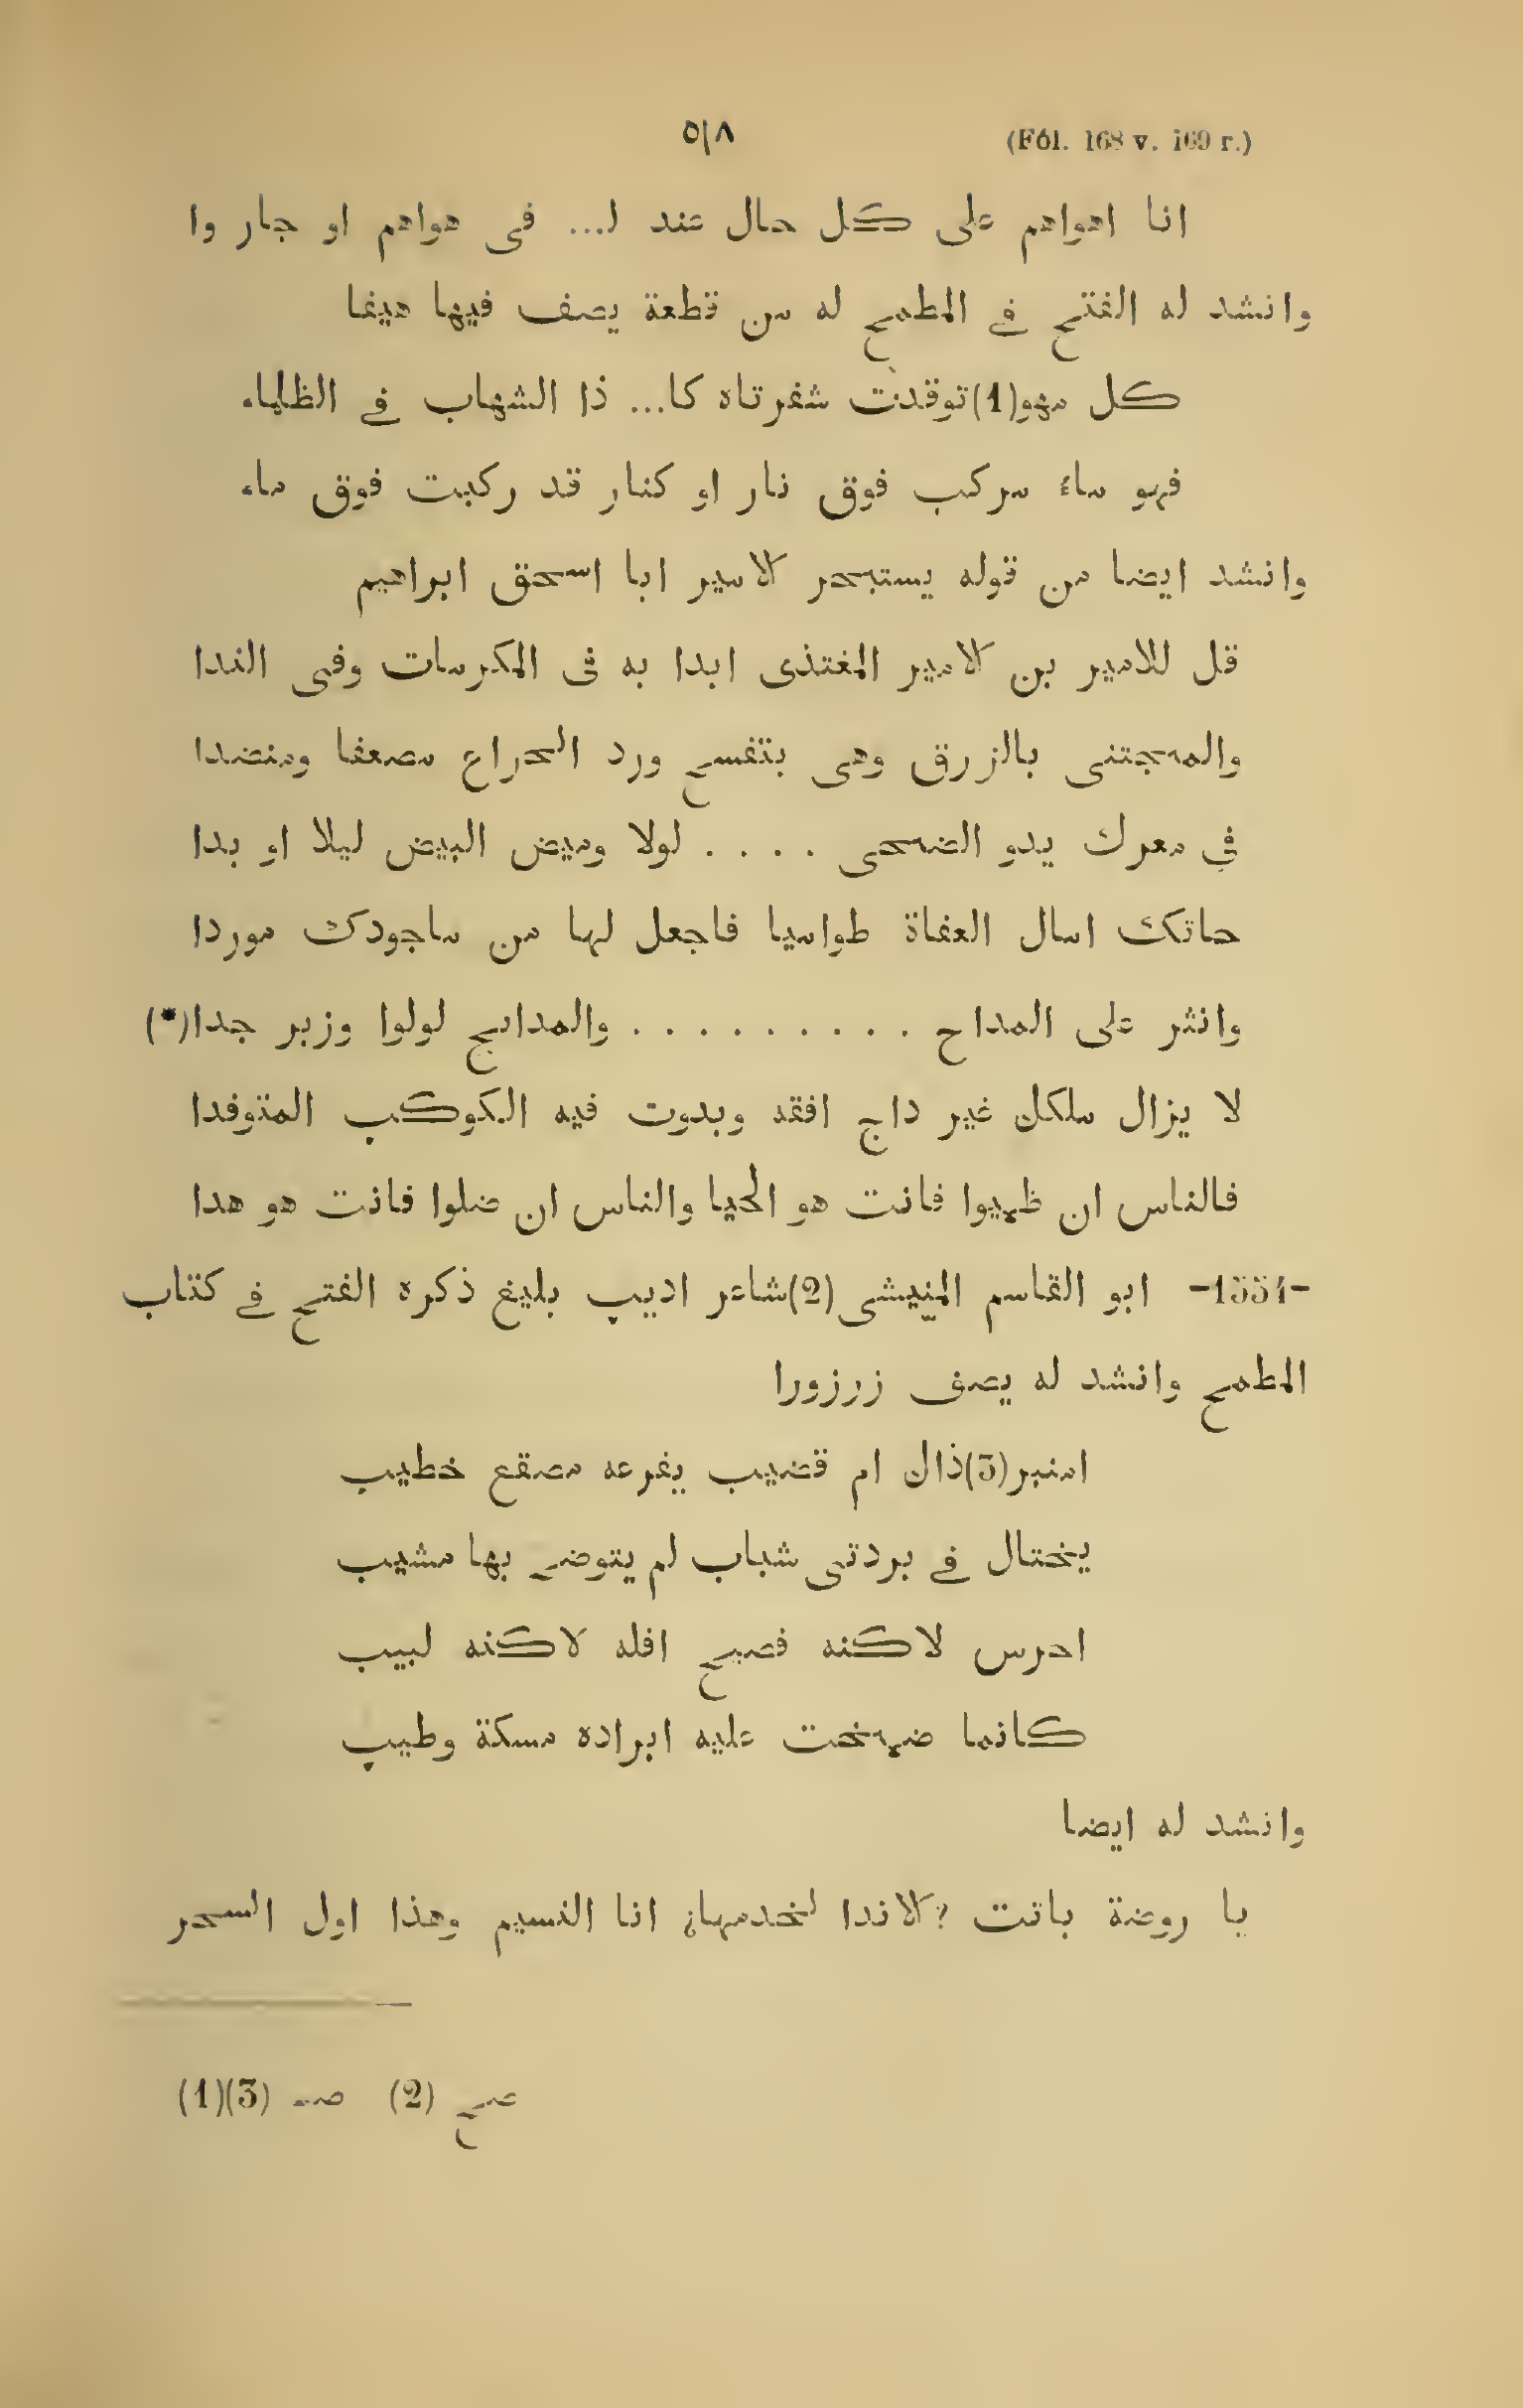 (Fól. 168 v. 169 r.) ٥١٨
انا اهواهم على كل حال عند لـ... فى هواهم او جار وا
وانشد له الفتح فى المطمح له من قطعة يصف فيها هيفا
كل مهو(1)توقدت شفرتاه كا... ذا الشهاب فى الظلماء
فهو ماء مركب فوق نار او كنار قد ركبت فوق ماء
وانشد ايضا من قوله يستبحر الامير ابا اسحق ابراهيم
قل للامير بن الامير المغتذى ابدا به فى المكرمات وفى الندا
والمجتنى بالزرق وهى بتفسح ورد الحراع مصعفا ومنضدا
فى معرك يدو الضحى . . . . لولا وميض البيض ليلا او بدا
حاتك امال العفاة طواميا فاجعل لها من ماجودك موردا
وانثر على المداح . . . . . . . . . والمدايح لولوا وزبر جدا(*)
لا يزال ملكك غير داج افقه وبدوت فيه الكوكب المتوفدا
فالناس ان ظميوا فانت هو الحيا والناس ان ضلوا فانت هو هدا
-1554- ابو القاسم المنيشى(2)شاعر اديب بليغ ذكره الفتح فى كتاب
المطمح وانشد له يصف زرزورا
امنبر(3)ذاك ام قضيب يفرعه مصقع خطيب
يختال فى بردتى شباب لم يتوضح بها مشيب
احرس لاكنه فصيح افله لاكنه لبيب
كانما ضمخت عليه ابراده مسكة وطيب
وانشد له ايضا
يا روضة باتت ?الاندا لخدمها؟ انا النسيم وهذا اول السحر
(1)(3) صـ (2) صح